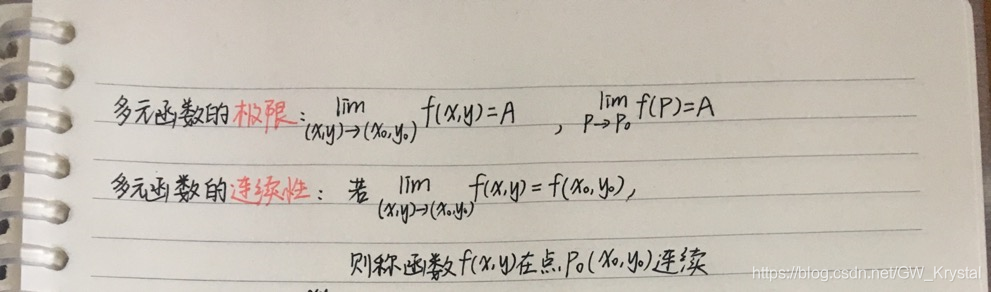 多元函数的极限: lim (x,y)→(x₀,y₀) f(x,y)=A , lim P→P₀ f(P)=A
多元函数的连续性: 若 lim (x,y)→(x₀,y₀) f(x,y)=f(x₀,y₀),
则称函数f(x,y)在点P₀(x₀,y₀)连续
https://blog.csdn.net/GW_Krystal